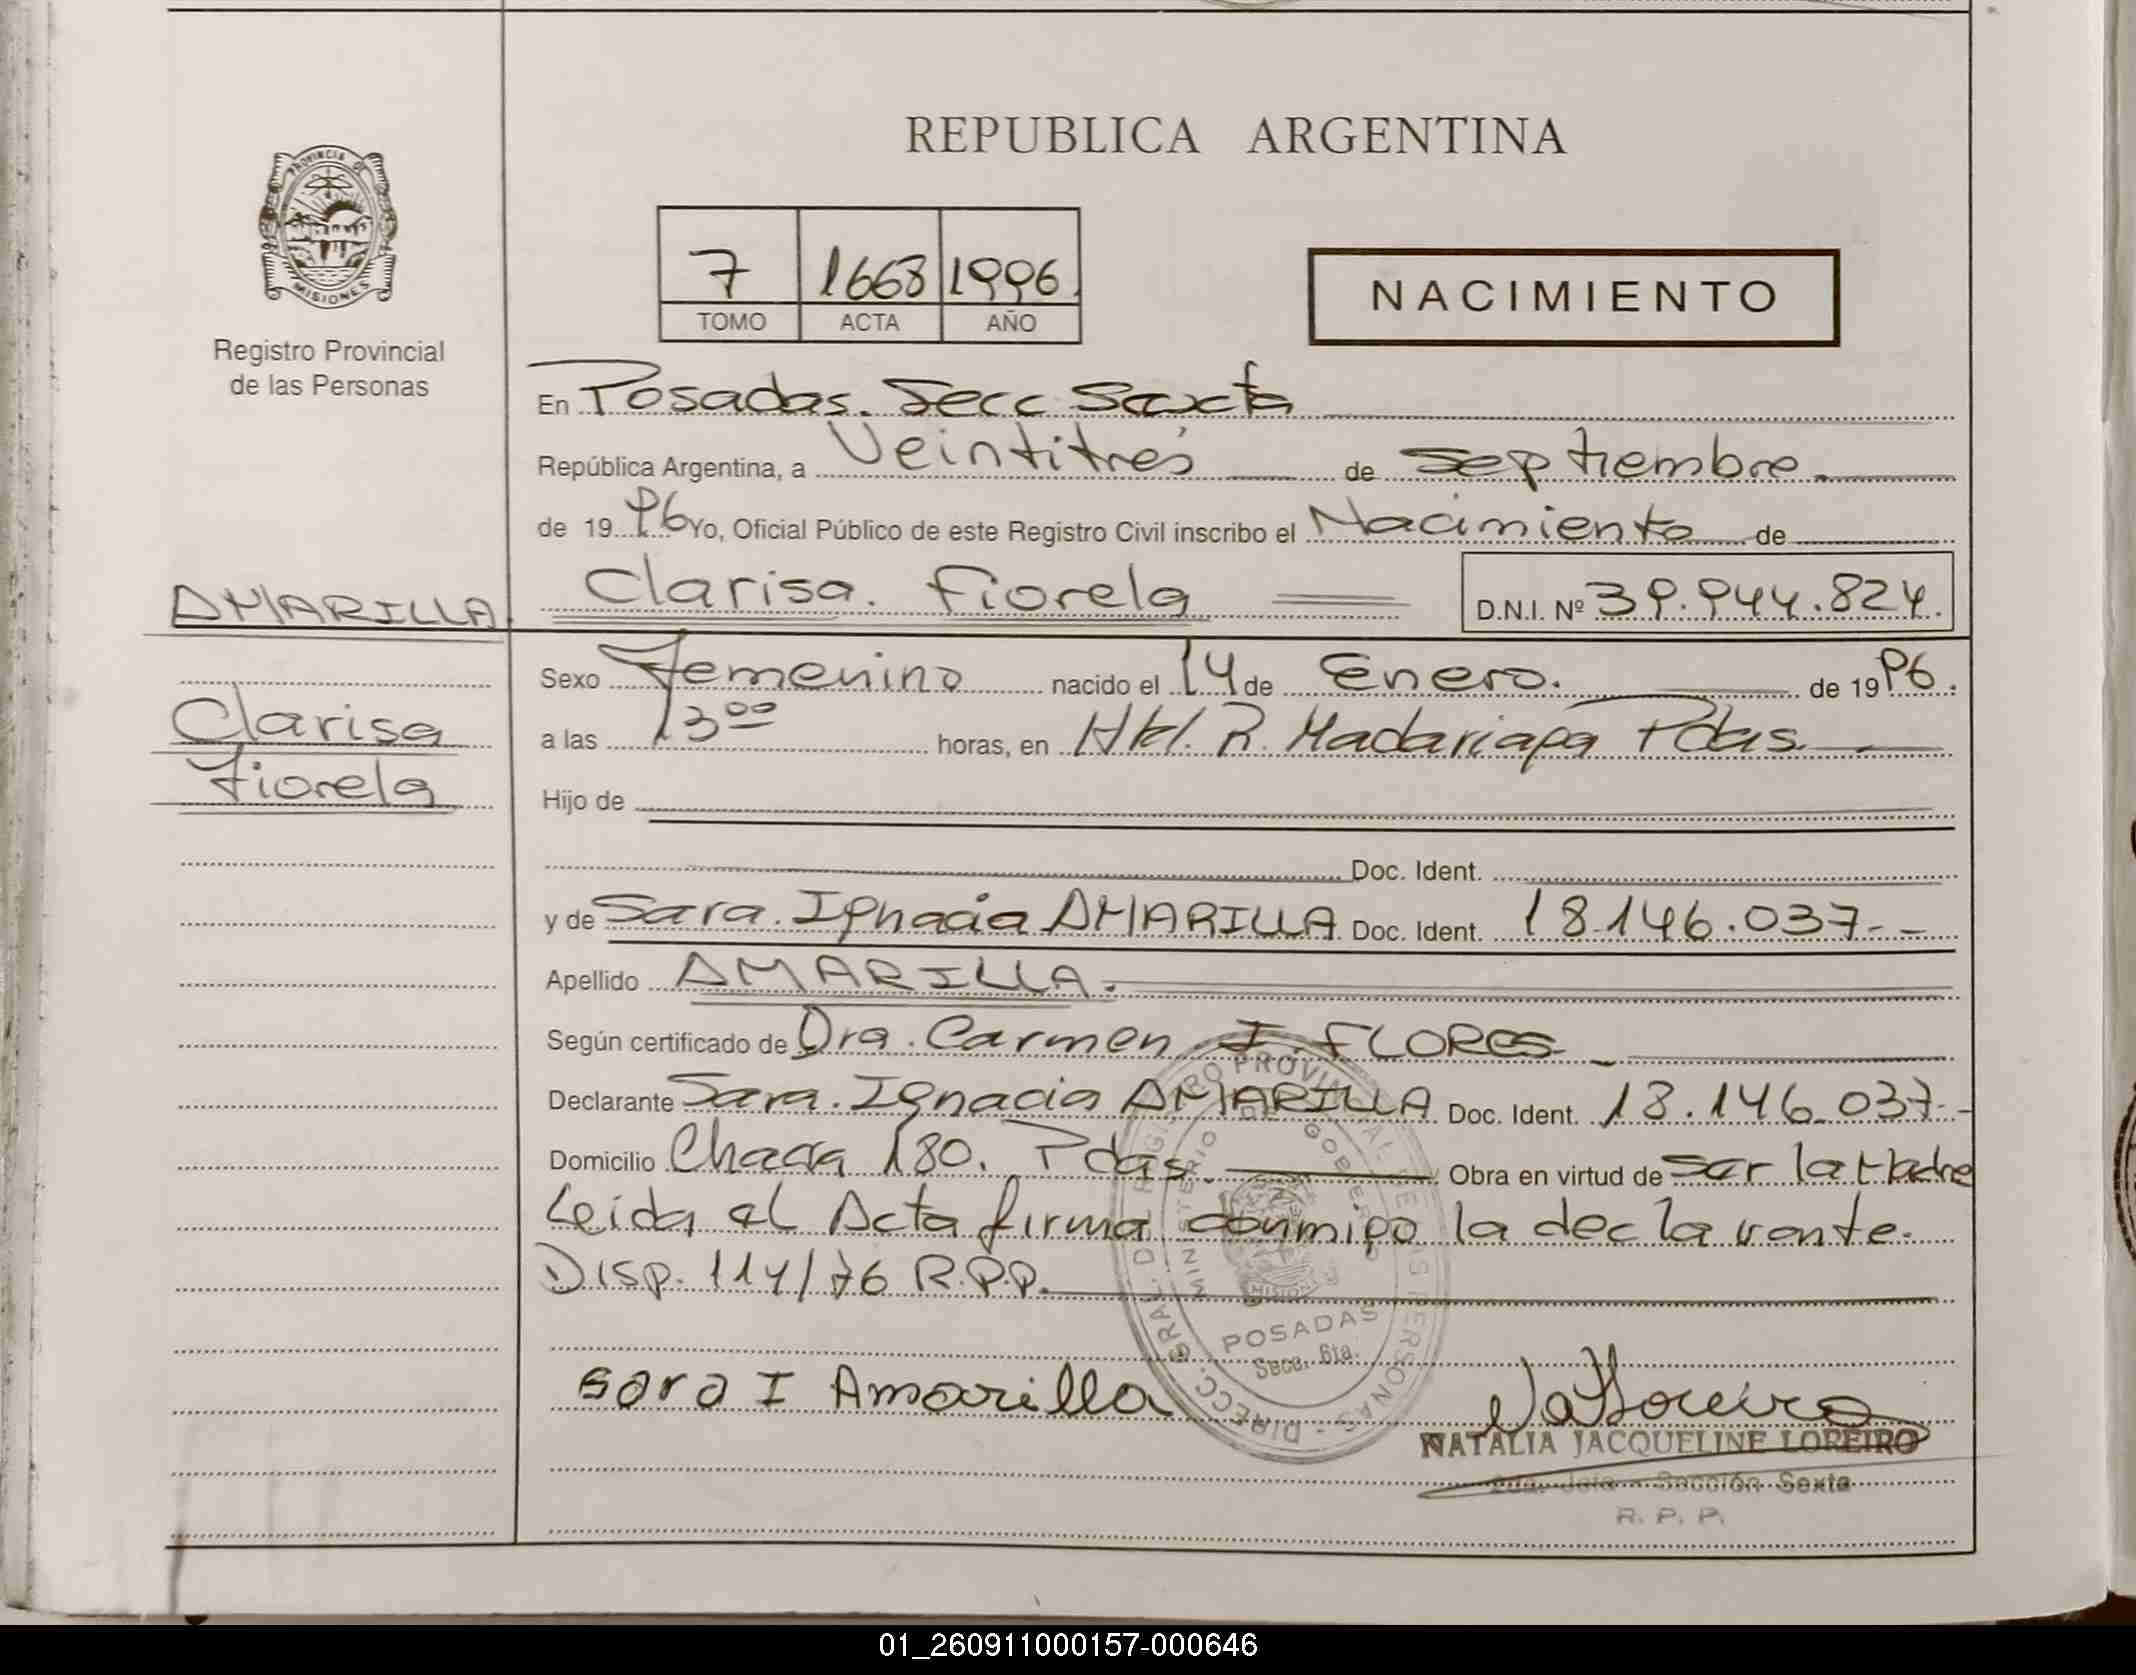 REPUBLICA ARGENTINA
PROVINCIA DE
MISIONES
Registro Provincial
de las Personas
7 1668 1996
TOMO ACTA AÑO
NACIMIENTO
En Posadas. Secc Sexta
República Argentina, a Veintitrés de Septiembre.
de 19 96 Yo, Oficial Público de este Registro Civil inscribo el Nacimiento de
Clarisa. Fiorela D.N.I. Nº 39.944.824.
AMARILLA
Clarisa
Fiorela
Sexo Femenino nacido el 14 de Enero. de 19 96.
a las 13 00 horas, en Htal. R. Madariaga Pdas.
Hijo de
Doc. Ident.
y de Sara. Ignacia AMARILLA Doc. Ident. 18.146.037-
Apellido AMARILLA.
Según certificado de Dra. Carmen I. FLORES
Declarante Sara. Ignacia AMARILLA Doc. Ident. 18.146.037-
Domicilio Chacra 180. Pdas. Obra en virtud de ser la Madre
Leida el Acta firma conmigo la declarante.
Disp. 114/76 R.P.P.
DIRECC. GRAL. DEL REGISTRO PROVINCIAL DE LAS PERSONAS
MINISTERIO DE GOBIERNO
MISIONES
POSADAS
Secc. 6ta.
Sara I Amarilla
NATALIA JACQUELINE LOREIRO
2da. Jefa - Sección Sexta
R. P. P.
01_260911000157-000646